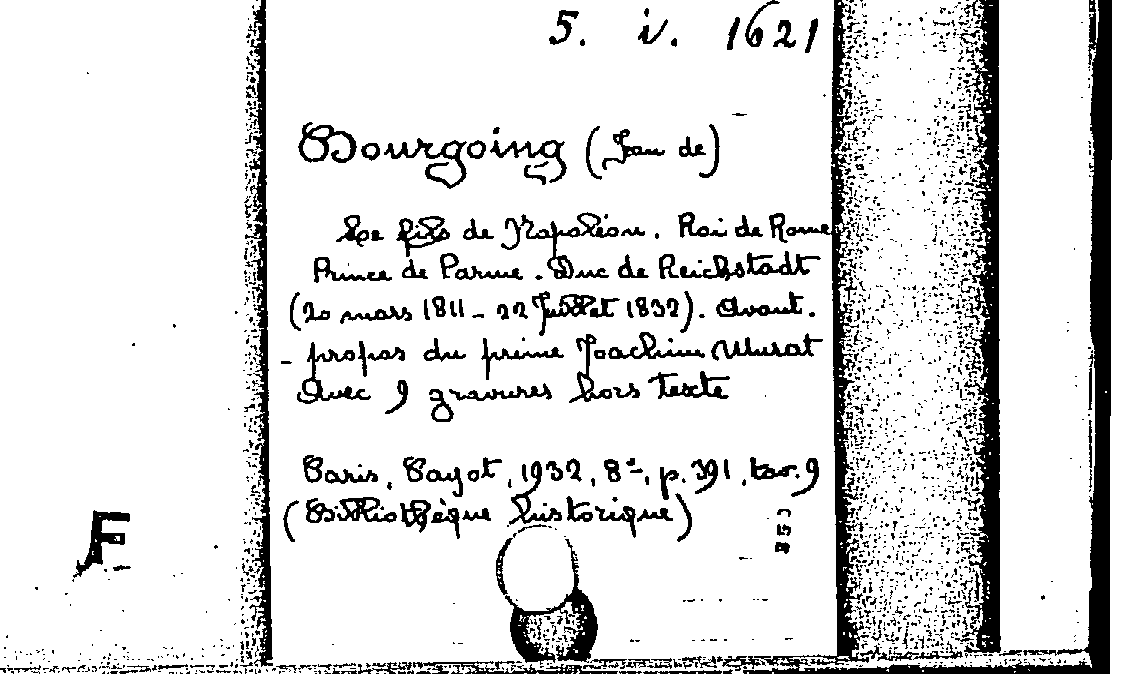 5. iv. 1621
Bourgoing (Jean de)
Le fils de Napoléon. Roi de Rome
Prince de Parme. Duc de Reichstadt
(20 mars 1811 - 22 Juillet 1832). Avant.
- propos du prince Joachim Murat
Avec 9 gravures hors texte
Paris, Payot, 1932, 8°, p. 391, tav. 9
(Bibliothèque historique)